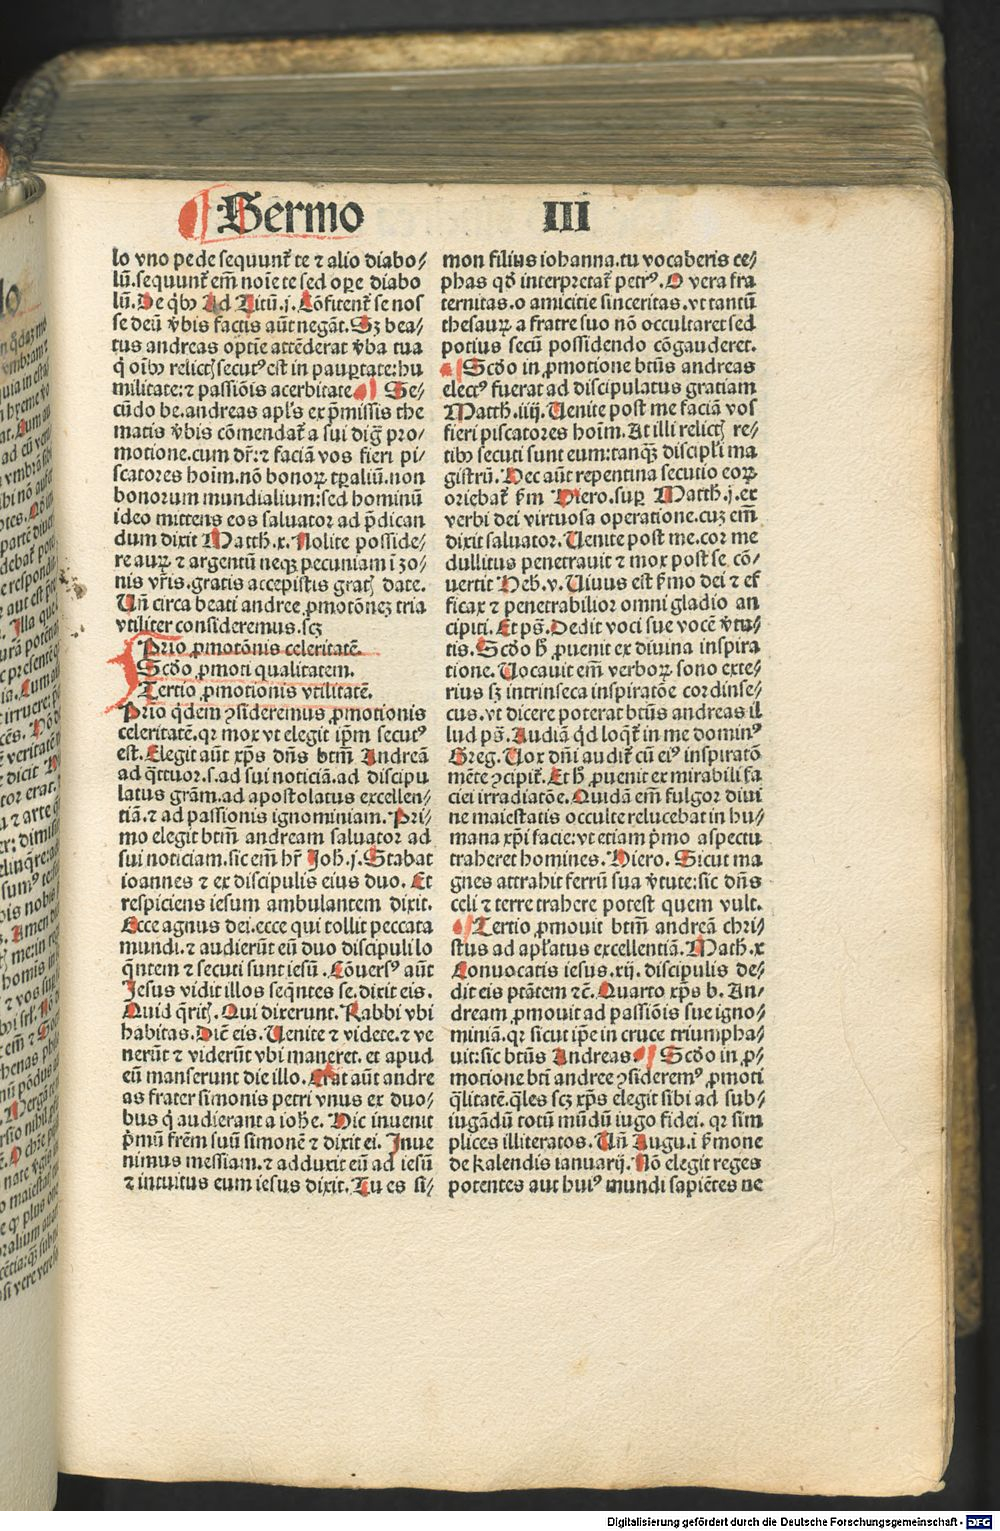 Sermo III
lo vno pede sequunt̃ te ⁊ alio diabo⸗
lũ.sequunt̃ em̃ noĩe te sed oꝑe diabo
lũ.De qͥbꝰ Ad Titũ.j.Cõfitent̃ se nos
se deũ v̾bis factis aũt negãt.Sꝫ bea⸗
tus andreas optĩe attẽderat v̾ba tua
q̇ oĩbꝰ relictꝭ secutꝰ est in pauꝑtate:hu
militate:⁊ passiõis acerbitate ¶ Se⸗
cũdo be.andreas apl̃s ex p̃missis the
matis v̾bis cõmendat̃ a sui dig̃ pro⸗
motione.cum dr̃:⁊ faciã vos fieri pi⸗
scatores hoĩm.nõ bonoꝝ tꝑaliũ.non
bonorum mundialium:sed hominũ
ideo mittens eos saluator ad p̃dican
dum dixit Matth.x.Nolite posside⸗
re auꝝ ⁊ argentũ neqꝫ pecuniam ĩ zo⸗
nis vr̃is.gratis accepistis gratꝭ date.
Uñ circa beati andree ꝓmotõneꝫ tria
vtiliter consideremus.scꝫ
Prio ꝓmotõnis celeritatẽ.
Scd̃o ꝓmoti qualitatem.
Tertio ꝓmotionis vtilitatẽ.
Prio q̇dem ꝯsideremus ꝓmotionis
celeritatẽ.qꝛ mox vt elegit ip̃m secutꝰ
est.Elegit aũt xp̃s dñs btm̃ Andreã
ad q̃ttuor.s.ad sui noticiã.ad discipu
latus grãm.ad apostolatus excellen⸗
tiã.⁊ ad passionis ignominiam.Pri⸗
mo elegit btm̃ andream saluator ad
sui noticiam.sic em̃ hr̃ Joh̃.j.Stabat
ioannes ⁊ ex discipulis eius duo. Et
respiciens iesum ambulantem dixit.
Ecce agnus dei.ecce qui tollit peccata
mundi.⁊ audierũt eũ duo discipuli lo
q̃ntem ⁊ secuti sunt iesũ .Cõuersꝰ aũt
Jesus vidit illos seq̃ntes se.dixit eis.
Quid q̃ritꝭ.Qui dixerunt.Rabbi vbi
habitas.Dic̃ eis.Uenite ⁊ videte.⁊ ve
nerũt ⁊ viderũt vbi maneret. et apud
eũ manserunt die illo.Erat aũt andre
as frater simonis petri vnus ex duo⸗
bus q̇ audierant a ioh̃e. Hic inuenit
p̃mũ fr̃em suũ simonẽ ⁊ dixit ei. Inue
nimus messiam.⁊ adduxit eũ ad iesũ
⁊ intuitus eum iesus dixit.Tu es si⸗
mon filius iohanna.tu vocaberis ce⸗
phas qd̃ interpretat̃ petrꝰ.O vera fra
ternitas.o amicitie sinceritas.vt tantũ
thesauꝝ a fratre suo nõ occultaret sed
potius secũ possidendo cõgauderet.
¶ Scd̃o in ꝓmotione btũs andreas
electꝰ fuerat ad discipulatus gratiam
Matth.iiij.Uenite post me faciã vos
fieri piscatores hoĩm.At illi relictꝭ re⸗
tibꝰ secuti sunt eum:tanqꝫ discipl̃i ma
gistrũ.Hec aũt repentina secutio eoꝝ
oriebat̃ ẜm Hiero.suꝑ Matth.j.ex
verbi dei virtuosa operatione.cuꝫ em̃
dixit saluator.Uenite post me.cor me
dullitus penetrauit ⁊ mox post se cõ⸗
uertit Heb̃.v.Uiuus est ẜmo dei ⁊ ef
ficax ⁊ penetrabilior omni gladio an
cipiti.Et pš.Dedit voci sue vocẽ v̾tu⸗
tis.Scd̃o h̃ ꝓuenit ex diuina inspira
tione.Uocauit em̃ verboꝝ sono exte⸗
rius sꝫ intrinseca inspiratõe cor dinse⸗
cus.vt dicere poterat btũs andreas il
lud pš.Audiã qd̃ loqt̃ in me dominꝰ
Greg.Uox dñi audit̃ cũ eiꝰ inspiratõ
mẽte ꝯcipit̃.Et h̃ ꝓuenit ex mirabili fa
ciei irradiatõe.Quidã em̃ fulgor diui
ne maiestatis occulte relucebat in hu⸗
mana xp̃i facie:vt etiam p̃mo aspectu
traheret homines.Hiero.Sicut ma
gnes attrahit ferrũ sua v̾tute:sic dñs
celi ⁊ terre trahere potest quem vult.
¶ Tertio ꝓmouit btm̃ andreã chri⸗
stus ad apl̃atus excellentiã.Math.x
Conuocatis iesus.xij. discipulis de⸗
dit eis ptãtem ⁊c̃.Quarto xp̃s b.An⸗
dream ꝓmouit ad passiõis sue igno⸗
miniã.qꝛ sicut ip̃e in cruce triumpha⸗
uit:sic btũs Andreas.¶ Scd̃o in ꝓ⸗
motione bti̇ andree ꝯsideremꝰ ꝓmoti
q̃litatẽ.q̃les scꝫ xp̃s elegit sibi ad sub⸗
iugãdũ totũ mũdũ iugo fidei. qꝛ sim
plices illiteratos.Uñ Augu.ĩ ẜmone
de kalendis ianuarij.Nõ elegit reges
potentes aut huiꝰ mundi sapiẽtes ne
Digitalisierung gefördert durch die Deutsche Forschungsgemeinschaft - DFG